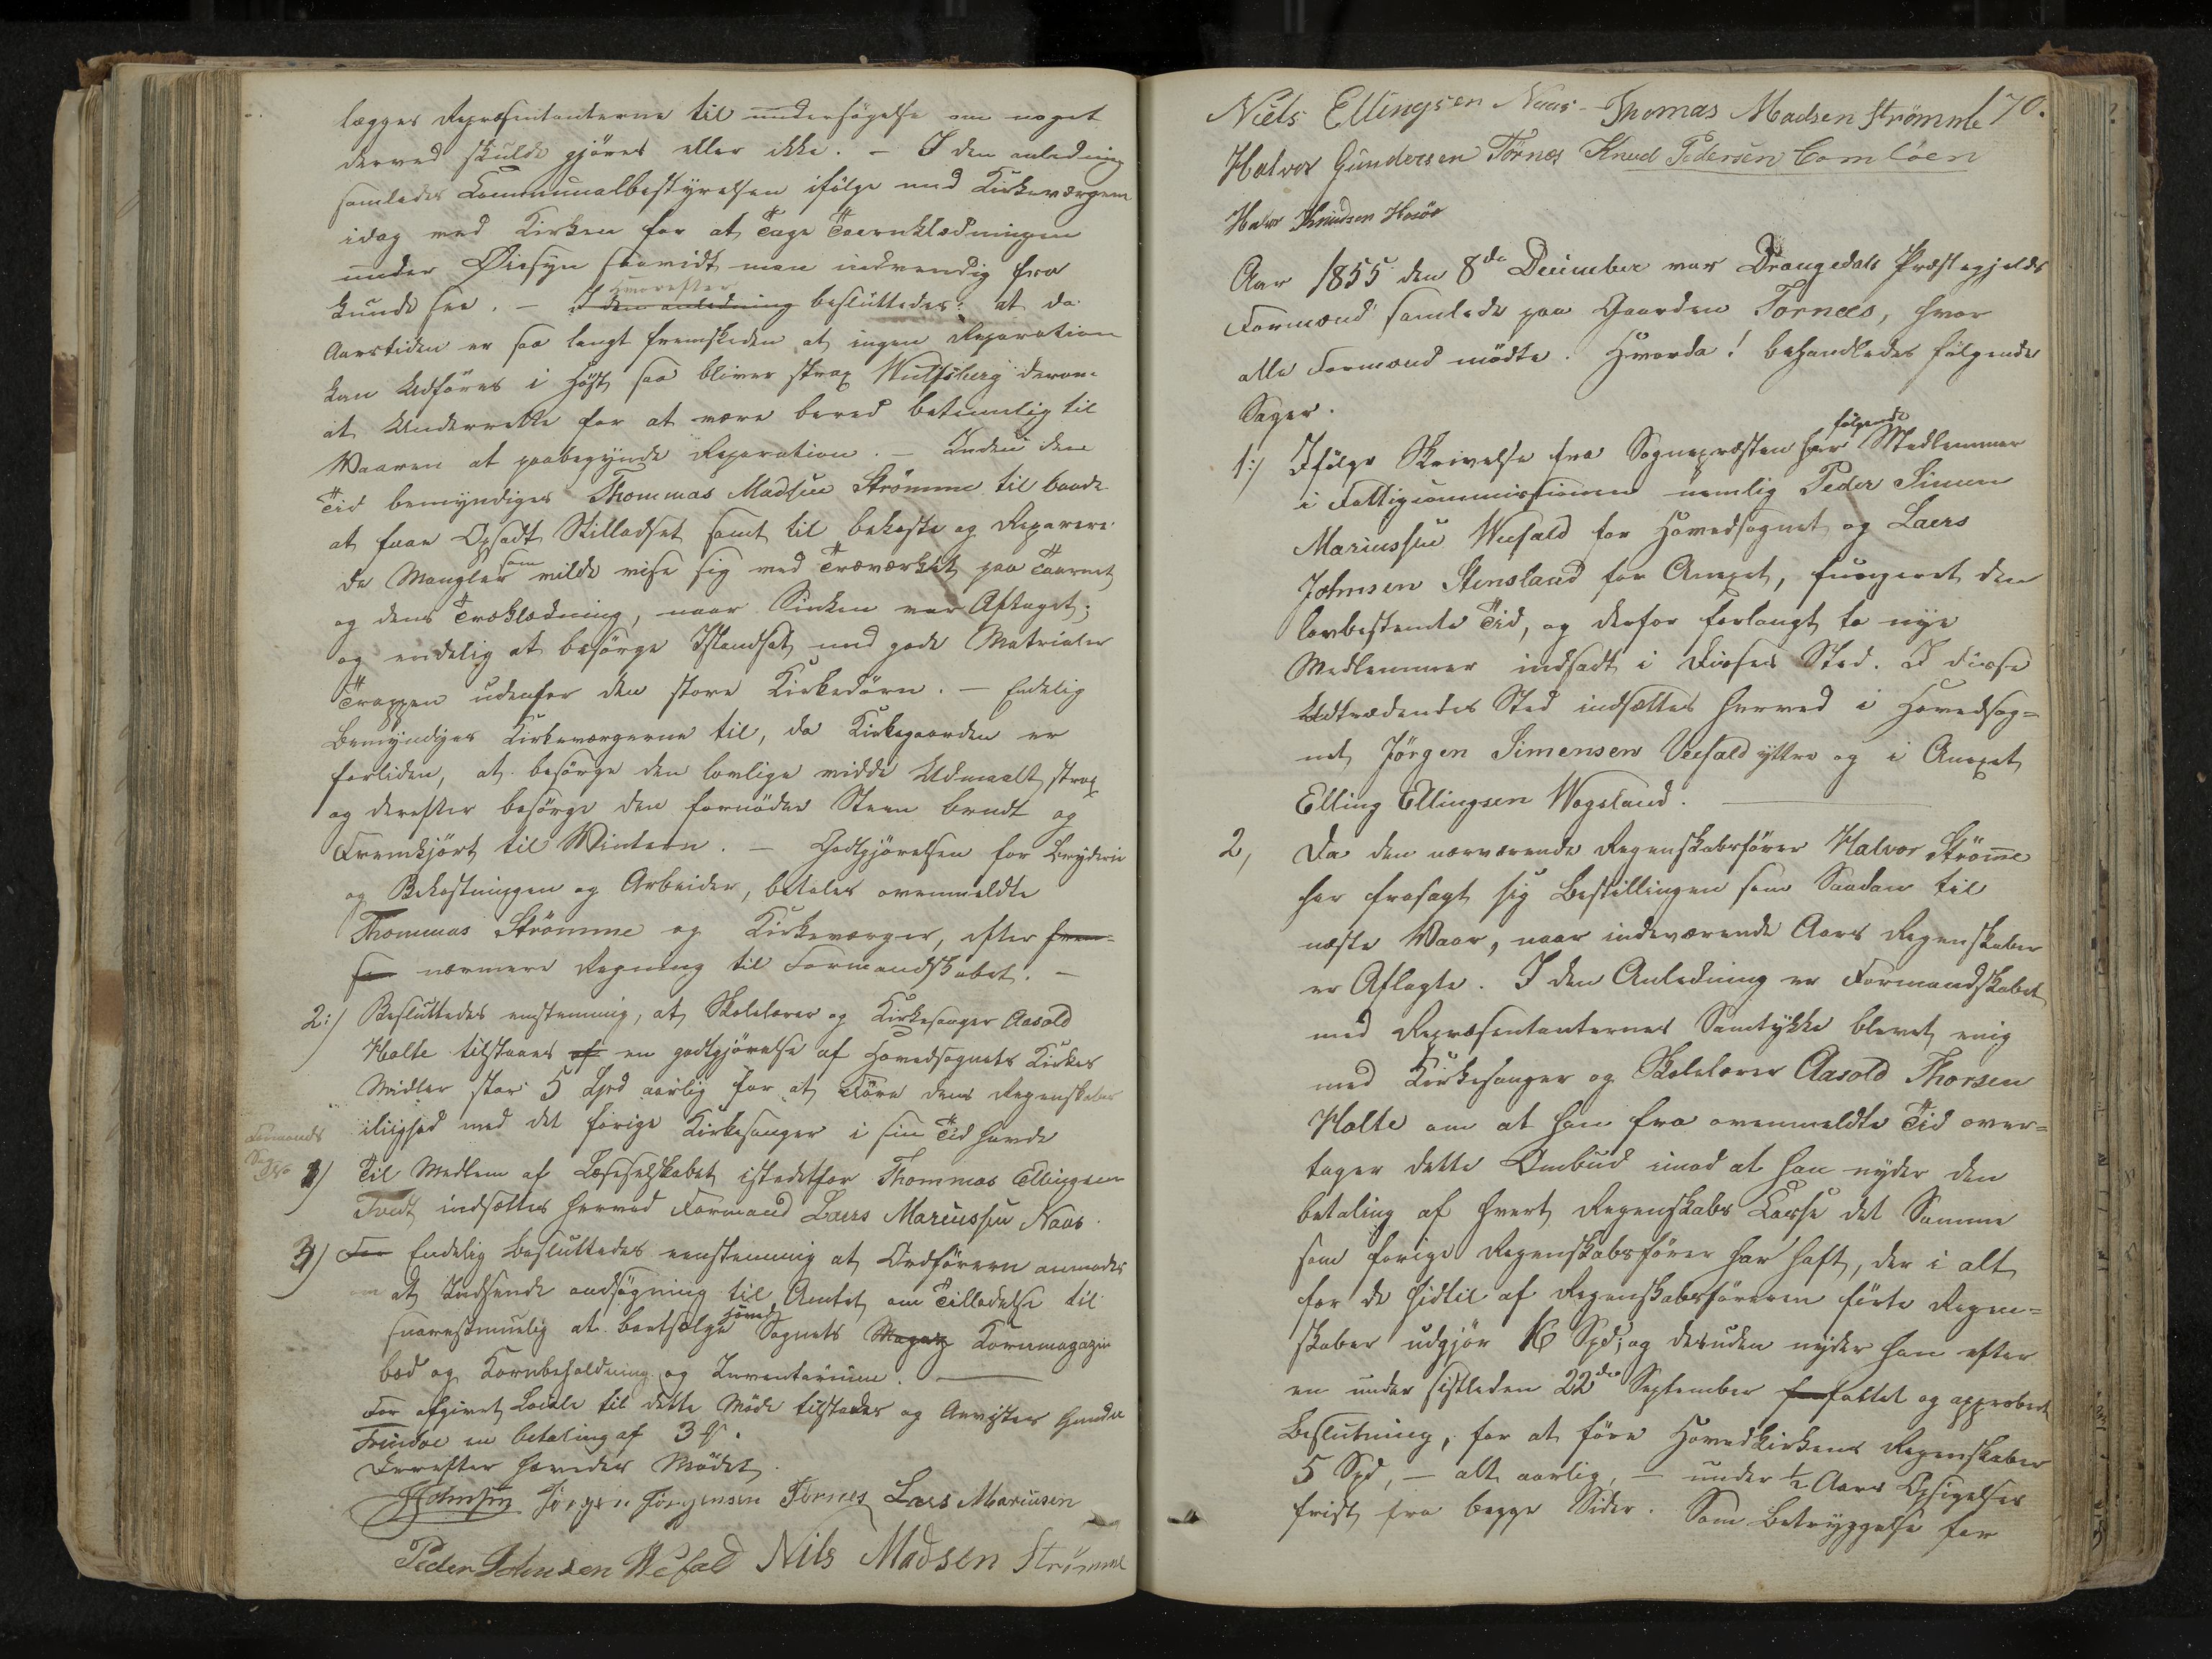 lægges Repræsentanterne til undersøgelse om noget
derved skulde gjöres eller ikke. – I den anledning
samledes Communalbestyrelsen ifölge med Kirkeværgerne
idag ved Kirken for at tage Taarnklædningen
under Öiesyn saavidt man indvendig fra
kunde see. – I den anledning hvorefter besluttedes: at da
Aarstiden er saa langt fremskeden at ingen Reparation
kan Udföres i Höst saa bliver strax Wulfsberg derom
at Underrette for at være bered betimelig til
Vaaren at paabegynde Reparation. – Inden den
Tid bemyndiges Thommas Madsen Strömme til baade
at faae Opsadt Stilladset samt til bekoste og Reparere
de Mangler som vilde vise sig ved Træværket paa Taarnet
og dens Træklædning, naar Sinken var Aftaget;
og endelig at besörge Istandsat med gode Matrialer
Trappen udenfor den store Kirkedörn. – Endelig
Bemyndiges Kirkeværgerne til, da Kirkegaarden er
forliden, at besörge den lovlige vidde Udmaalt strax
og derefter besörge den fornöden Steen brudt og
Fremkjört til Vintern. – Godtgjörelsen for Bryderie
og Bekostningen og Arbeider, betales ovenmeldte
Thommas Strömme og Kirkeværger, efter frem-
se nærmere Regning til Formandskabet. –
2:) Besluttedes enstemmig, at Skolelærer og Kirkesanger Aasold
Holte tilstaaes af en godtgjörelse af Hovedsognets Kirkes
Midler stor 5 Spd aarlig for at Före dens Regnskaber
iliighed med det forige Kirkesanger i sin Tid havde
Formands
Sag
3) Til Medlem af Læseselskabet istedetfor Thommas Ellingsen
Tvedt indsættes herved Formand Laers Mariussen Naas.
4) For Endelig besluttedes eenstemmig at Ordföreren anmodes
om at Indsende andsögning til Amtet om Tilladelse til
snarestmuelig at bortsælge Hoved Sognets Magaz Kornmagazin
bod og Kornbeholdning og Inventarium.
For afgivet Locale til dette Möde tilstaaes og Anvistes Gunder
en betaling af 3
Derefter hævedes Mödet.
Johnsen Jörgen Jörgensen Törnes Lars Mariusen
Peder Johnsen Wefald Nils Madsen Strömme
70.
Niels Ellingsen Naas - Thomas Madsen Strömme
Halvor Gundersen Törnes Knud Pedersen
Knudsen
Aar 1855 den 8de December var Drangedals Præstegjelds
Formænd samlede paa Gaarden Tornæs, hvor
alle Formænd mödte. Hvorda! behandledes fölgende
Sager.
1:) Ifölge Skrivelse fra Sognepræsten har fölgende Medlemmer
i Fattigcommissionen nemlig Peder Simen
Mariussen Weefald for Hovedsognet og Laers
Johnsen Stensland for Anexet, fungeret den
lovbestemte Tid, og derfor forlangt to nye
Medlemmer indsadt i disses Sted. I disse
Udtrædendes Sted indsættes herved i Hovedsog=
net Jörgen Simensen Veefald yttre og i Anexet
Elling Ellingsen Wogsland.
2, Da den nærværende Regenskabsförer Halvor Strömme
har frasagt sig Bestillingen som Saadan til
næste Vaar, naar indeværende Aars Regenskaber
er Aflagte. I den Anledning er Formandskabet
med Repræsentanternes Samtykke blevet enig
med Kirkesanger og Skolelærer Aasold Thorsen
Holte om at han fra ovenmeldte Tid over=
tager dette Ombud imod at han nyder den
betaling af hvert Regenskabs Kasse det Samme
som forige Regenskabsförer har haft, der i alt
for de hidtil af Regenskabsföreren förte Regen=
skaber udgjör 16 Spd; og desuden nyder han efter
en under sistleden 22de September f fattet og approberet
Beslutning, for at före Hovedkirkens Regenskaber
5 Spd, – alt aarlig, – under 1/2 Aars Opsigelses
frist fra begge Sider. Som betryggelse for